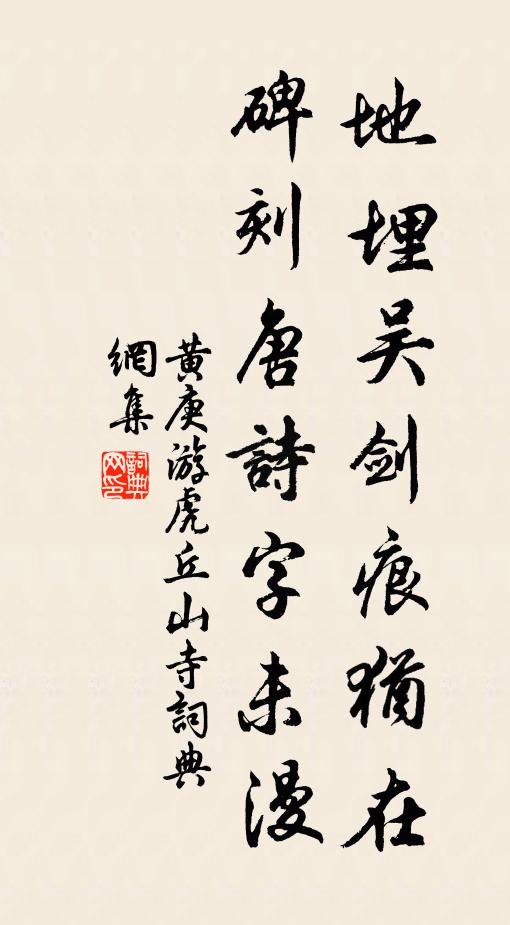 地埋吴剑痕犹在
碑刻唐詩字未漫
黄庚游虎丘山寺詞典
網集
詞典网印